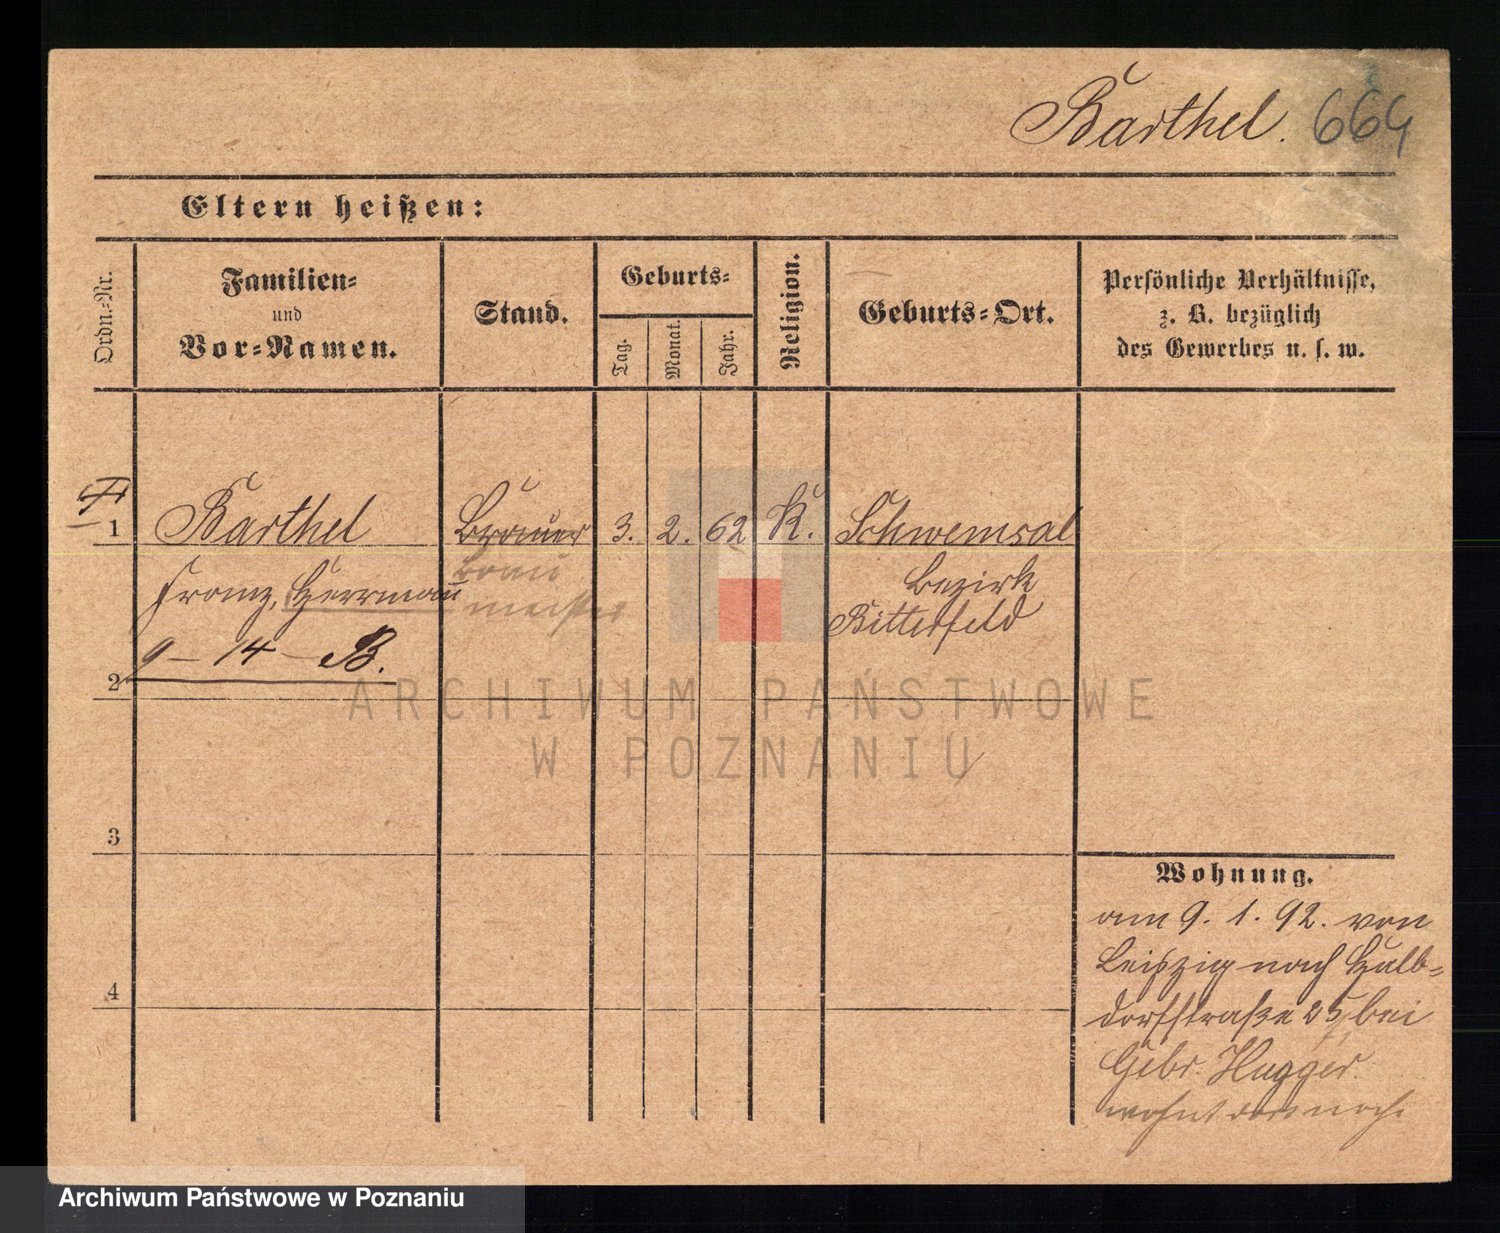 Barthel. 664
Eltern heißen:
Ordn.-Nr.
Familien-
und
Vor-Namen.
Stand.
Geburts-
Tag.
Monat.
Jahr.
Religion.
Geburts-Ort.
Persönliche Verhältnisse,
z. B. bezüglich
des Gewerbes u. s. w.
1 Barthel Brauer 3. 2. 62 K. Schwemsal
Franz, Herrmann Brau Bezirk
meister Bitterfeld
9-14 B.
2
3
4
Wohnung.
am 9. 1. 92. von
Leipzig nach Halb-
dorfstraße 25 bei
Gebr. Hugger.
wohnt dort noch.
ARCHIWUM PAŃSTWOWE
W POZNANIU
Archiwum Państwowe w Poznaniu